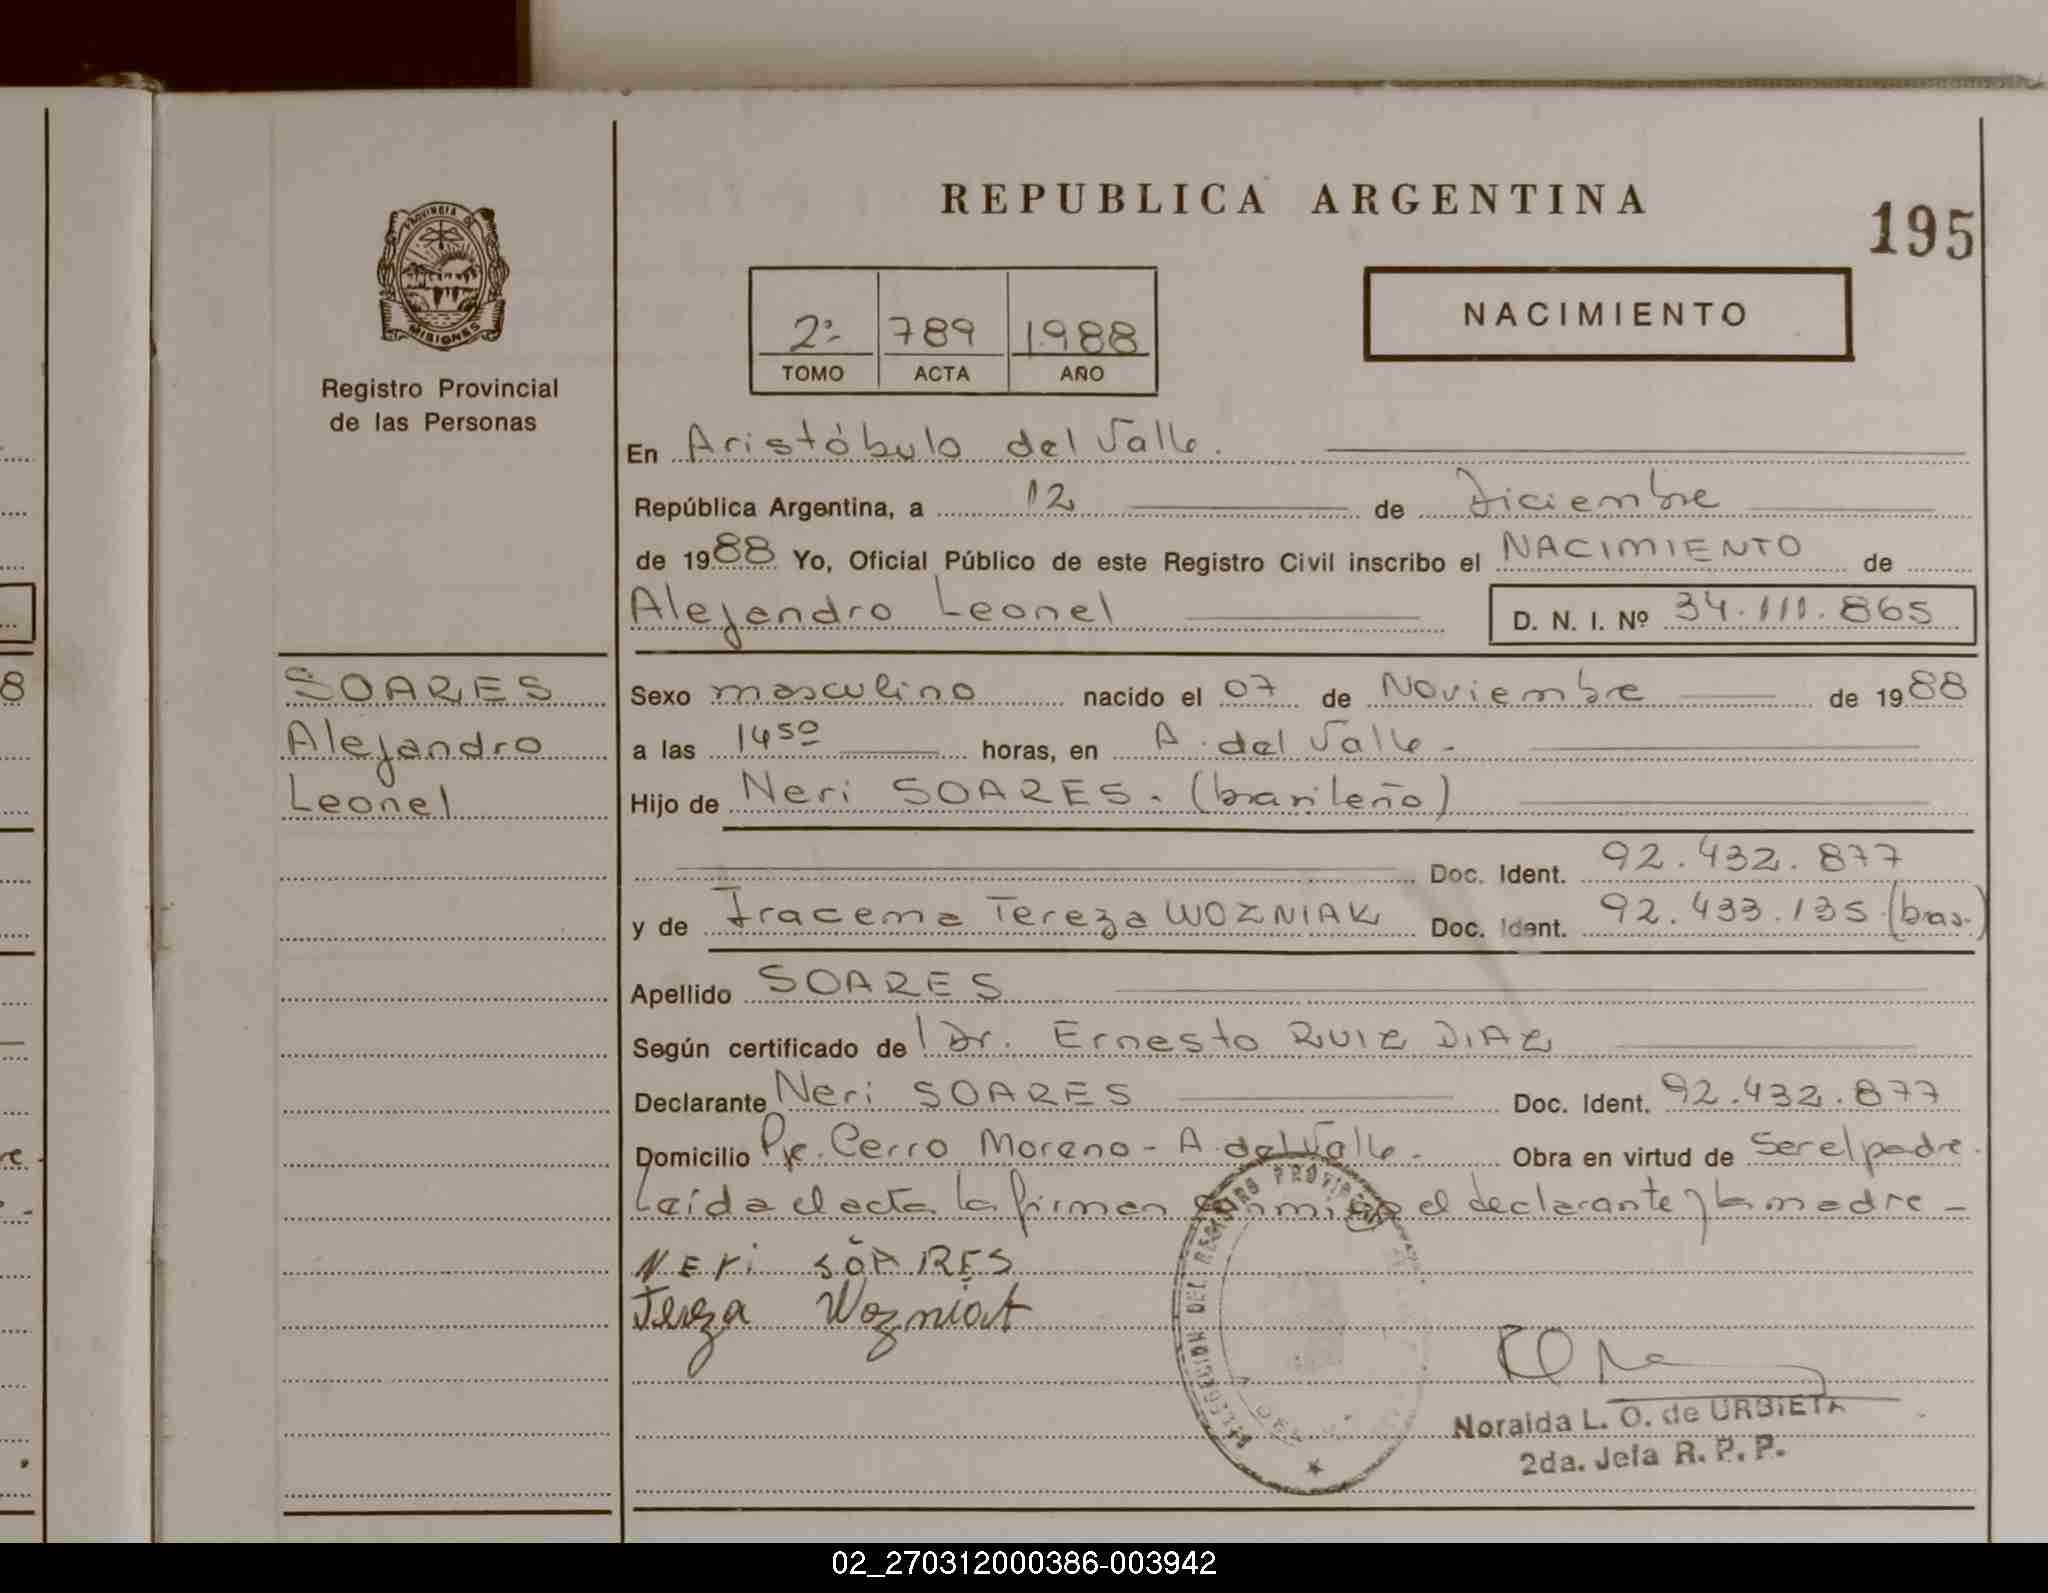 REPUBLICA ARGENTINA
195
PROVINCIA DE
MISIONES
Registro Provincial
de las Personas
2º 789 1988
TOMO ACTA AÑO
NACIMIENTO
En Aristóbulo del Valle.
República Argentina, a 12 de Diciembre
de 1988 Yo, Oficial Público de este Registro Civil inscribo el NACIMIENTO de
Alejandro Leonel D. N. I. Nº 34.111.865
SOARES
Alejandro
Leonel
Sexo masculino nacido el 07 de Noviembre de 1988
a las 14⁵⁰ horas, en A. del Valle -
Hijo de Neri SOARES. (brasileño)
Doc. Ident. 92.432.877
y de Iracema Tereza WOZNIAK Doc. Ident. 92.433.135 (bras.)
Apellido SOARES
Según certificado de Dr. Ernesto RUIZ DIAZ
Declarante Neri SOARES Doc. Ident. 92.432.877
Domicilio Pje. Cerro Moreno - A. del Valle - Obra en virtud de ser el padre.
Leída el acta la firman conmigo el declarante y la madre -
NERi SOARES
Tereza Wozniak
DEL REGISTRO PROVINCIAL
Noralda L. O. de URBIETA
2da. Jefa R. P. P.
02_270312000386-003942